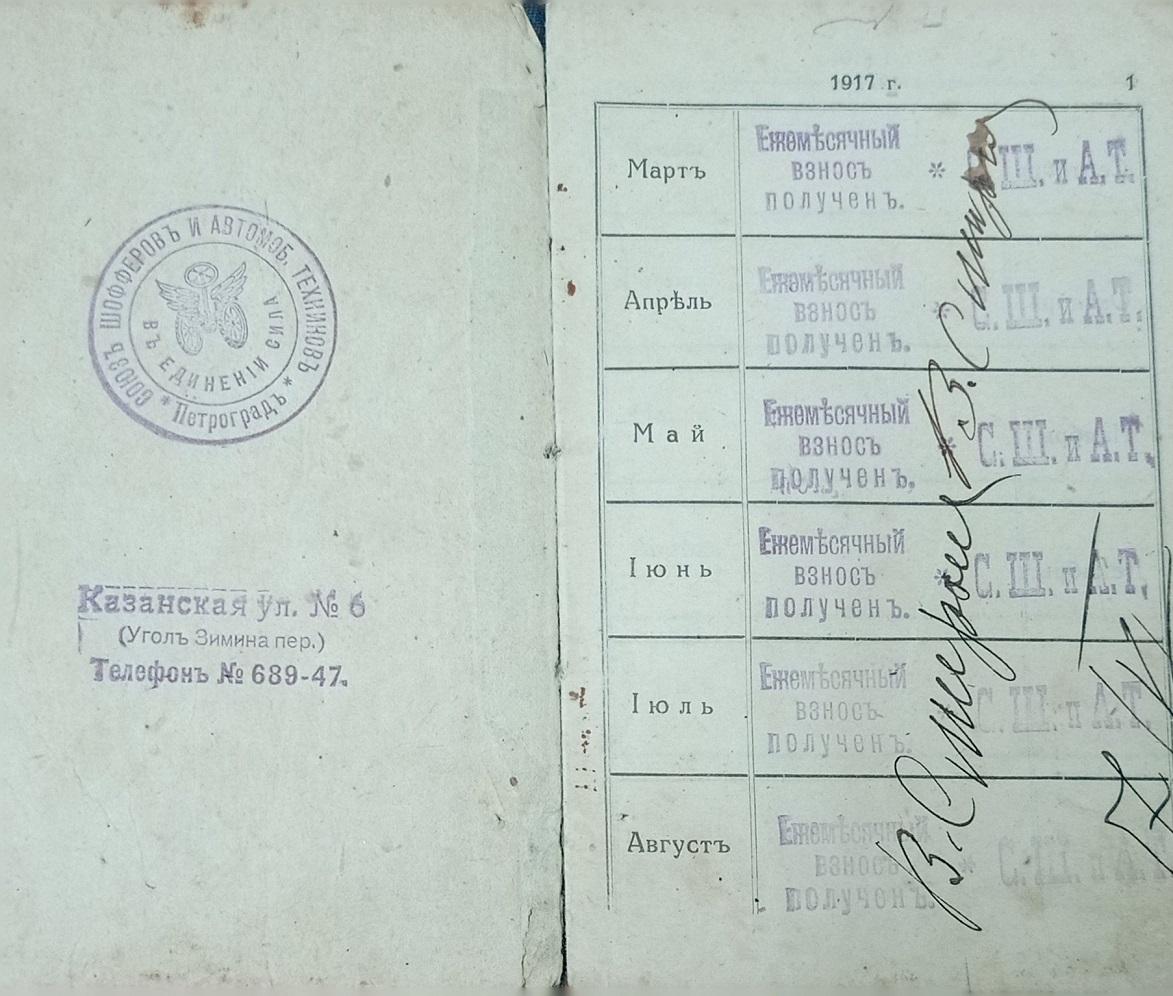 СОЮЗЪ ШОФФЕРОВЪ И АВТОМОБ. ТЕХНИКОВЪ
* Петроградъ *
ВЪ ЕДИНЕНІИ СИЛА
Казанская ул. № 6
(Уголъ Зимина пер.)
Телефонъ № 689-47.
1917 г.
1
Мартъ
Ежемѣсячный
взносъ
полученъ.
* С. Ш. и А. Т.
Апрѣль
Ежемѣсячный
взносъ
полученъ.
* С. Ш. и А. Т.
Май
Ежемѣсячный
взносъ
полученъ.
* С. Ш. и А. Т.
Іюнь
Ежемѣсячный
взносъ
полученъ.
* С. Ш. и А. Т.
Іюль
Ежемѣсячный
взносъ
полученъ.
С. Ш. и А. Т.
Августъ
Ежемѣсячный
взносъ
полученъ.
* С. Ш. и А. Т.